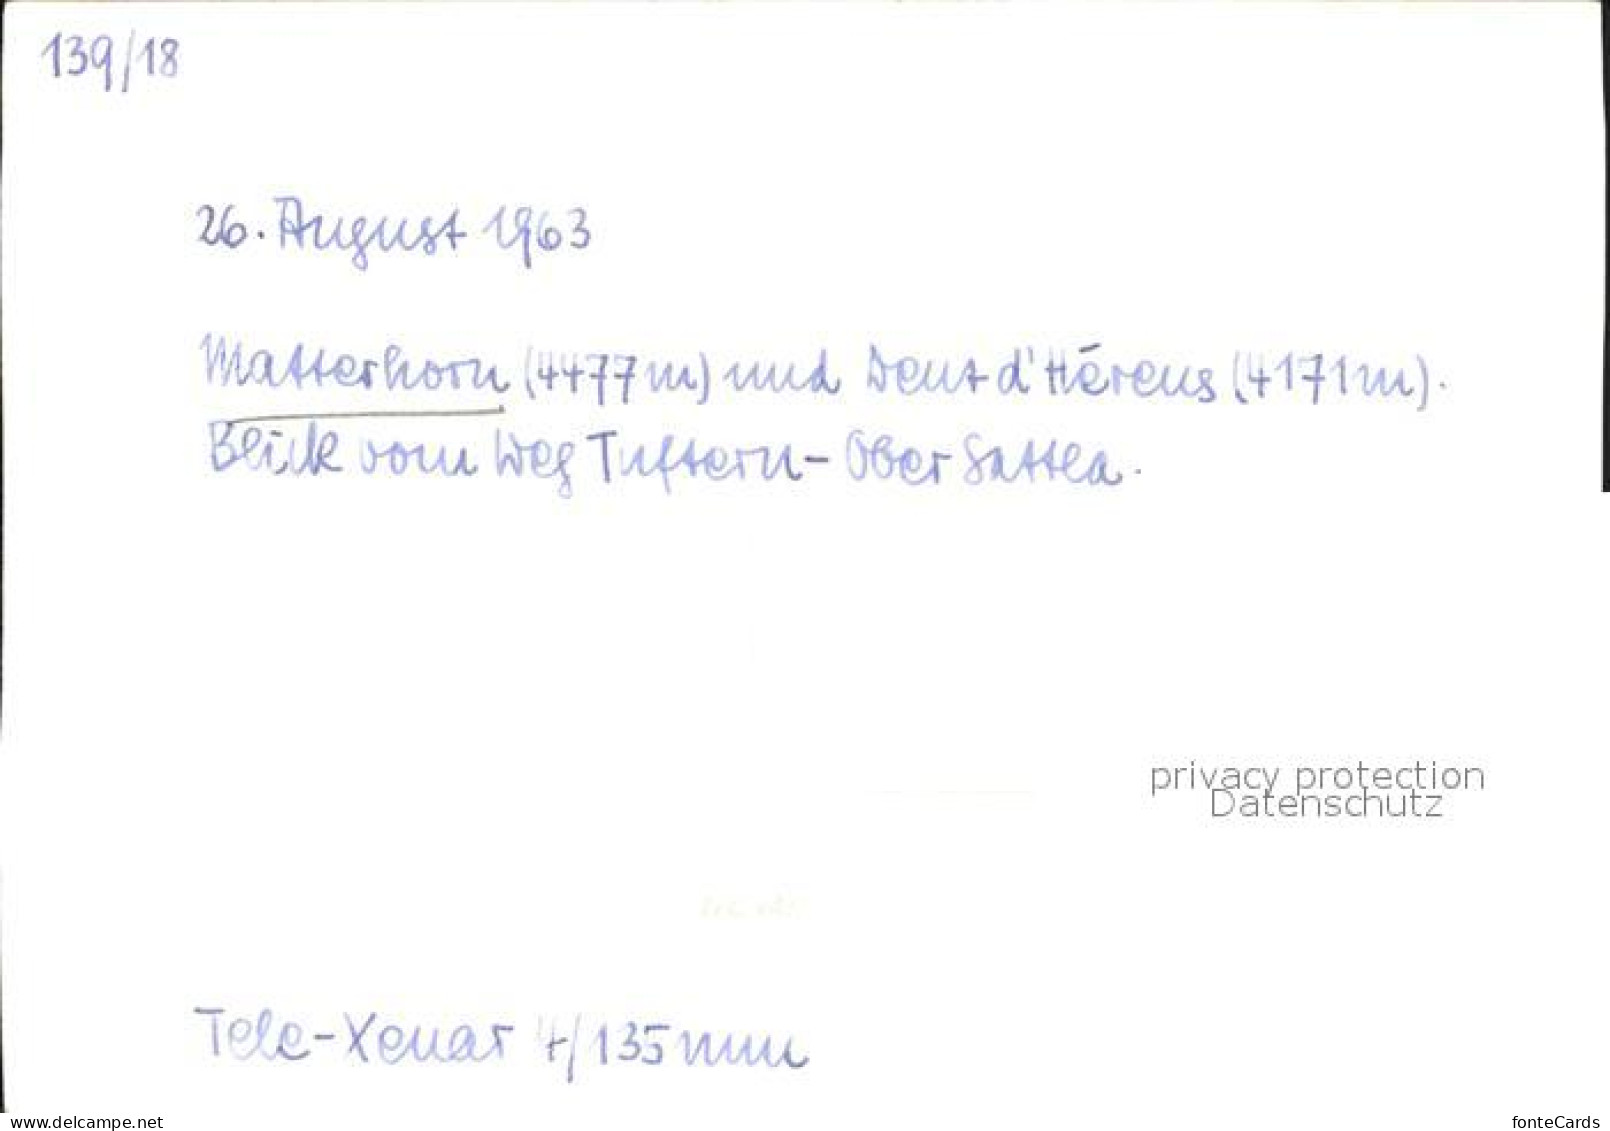 139/18
26. August 1963
Matterhorn (4477m) und Dent d'Hérens (4171m).
Blick vom Weg Tuftern - Ober Sattla.
privacy protection
Datenschutz
Tele-Xenar 4/135mm
www.delcampe.net
fonteCards